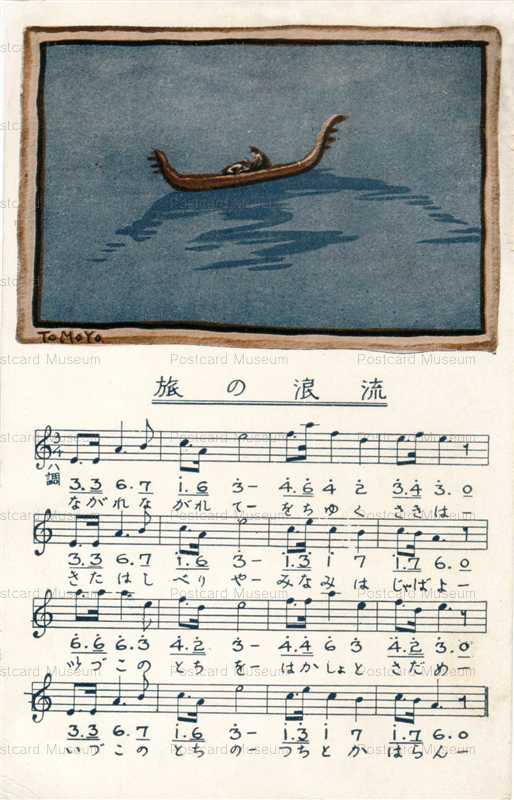 ToMoYo
旅の浪流
3/4
ハ調
3.3 6.7 i.6 3̇- 4̇.6̇ 4̇ 2̇ 3̇.4̇ 3̇.0
ながれながれてーをちゆくさきは
3.3 6.7 i.6 3̇- i.3̇ i 7 i.7 6.0
さたはしべりやーみなみはじゃばよー
6̇.6̇ 6̇.3̇ 4̇.2̇ 3̇- 4̇.4̇ 6̇ 3̇ 4̇.2̇ 3̇.0
いづこのとちをーはかしょとさだめー
3.3 6.7 i.6 3̇- i.3̇ i 7 i.7 6.0
いづこのとちのーつちとかはらんー
Postcard Museum